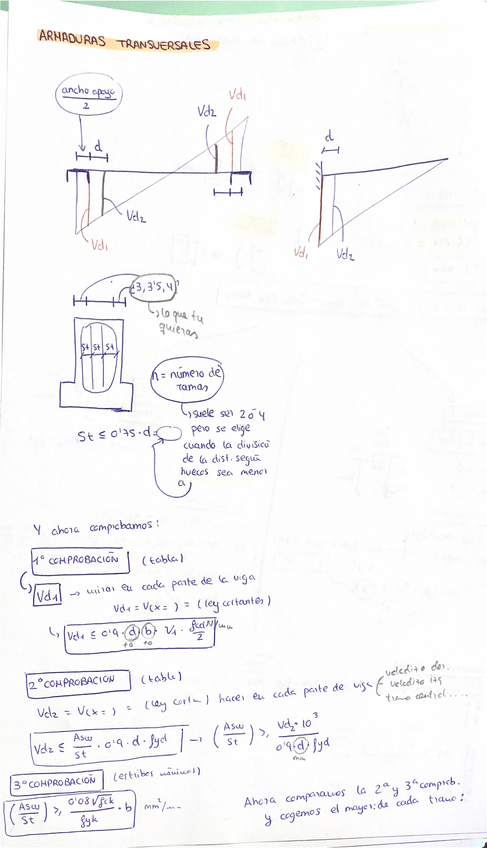 ARMADURAS TRANSVERSALES
ancho apoyo
2
d
Vd1
Vd2
Vd1
Vd2
d
Vd1
Vd2
3,3'5,4
lo que tu
quieras
St St St
n = número de
ramas
suele ser 2 ó 4
pero se elige
cuando la division
de la dist. según
huecos sea menor
a
St ≤ 0'75·d =
Y ahora comprobamos:
1º COMPROBACIÓN (tabla)
Vd1 → mirar en cada parte de la viga
Vd1 = V(x= ) = (ley cortantes)
Vd1 ≤ 0'9·d·b·V1·fcd/2 N/mm
2º COMPROBACIÓN (tabla)
Vd2 = V(x= ) = (ley corta) hacer en cada parte de viga
voladito der.
voladito izq
tramo central....
Vd2 ≤ Asw/St · 0'9 · d · fyd → (Asw/St) ≥ Vd2·10³ / 0'9·d·fyd
mm
3º COMPROBACIÓN (estribos mínimos)
(Asw/St) ≥ 0'08√fck / fyk · b mm²/mm
Ahora comparamos la 2ª y 3ª comprob.
y cogemos el mayor de cada tramo: